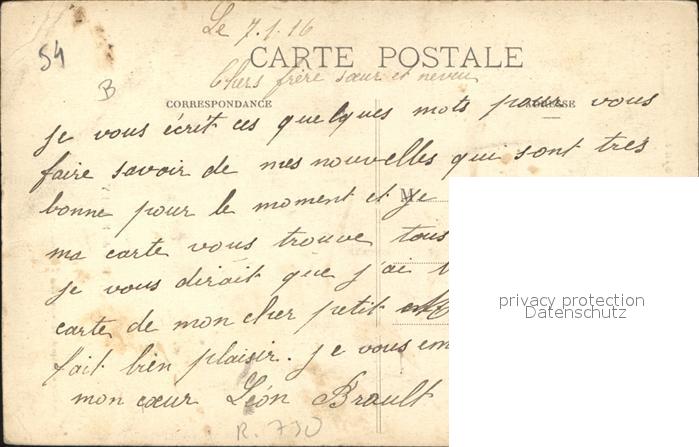 Le 7.1.16
54
CARTE POSTALE
Chers frère sœur et neveu
B
CORRESPONDANCE
je vous écrit ces quelques mots pour vous
faire savoir de mes nouvelles qui sont tres
bonne pour le moment et je
M
ma carte vous trouve tous
je vous dirait que j'ai
carte de mon cher petit
fait bien plaisir. je vous em
mon cœur Léon Brault
R. 730
privacy protection
Datenschutz